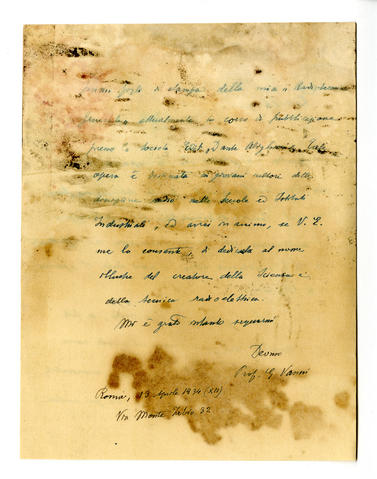 della mia
attualmente in corso di pubblicazione
presso la Società Dante Alighieri
opera è destinata ai giovani cultori delle
nelle Scuole e Istituti
Industriali, ed avrei in animo, se V. E.
me lo consente, di dedicarla al nome
illustre del creatore della Scienza e
della tecnica radioelettrica.
Mi è grato intanto segnarmi
Devmo
Prof. G. Vanni
Roma, 13 Aprile 1934 (XII)
Via Monte Zebio 32